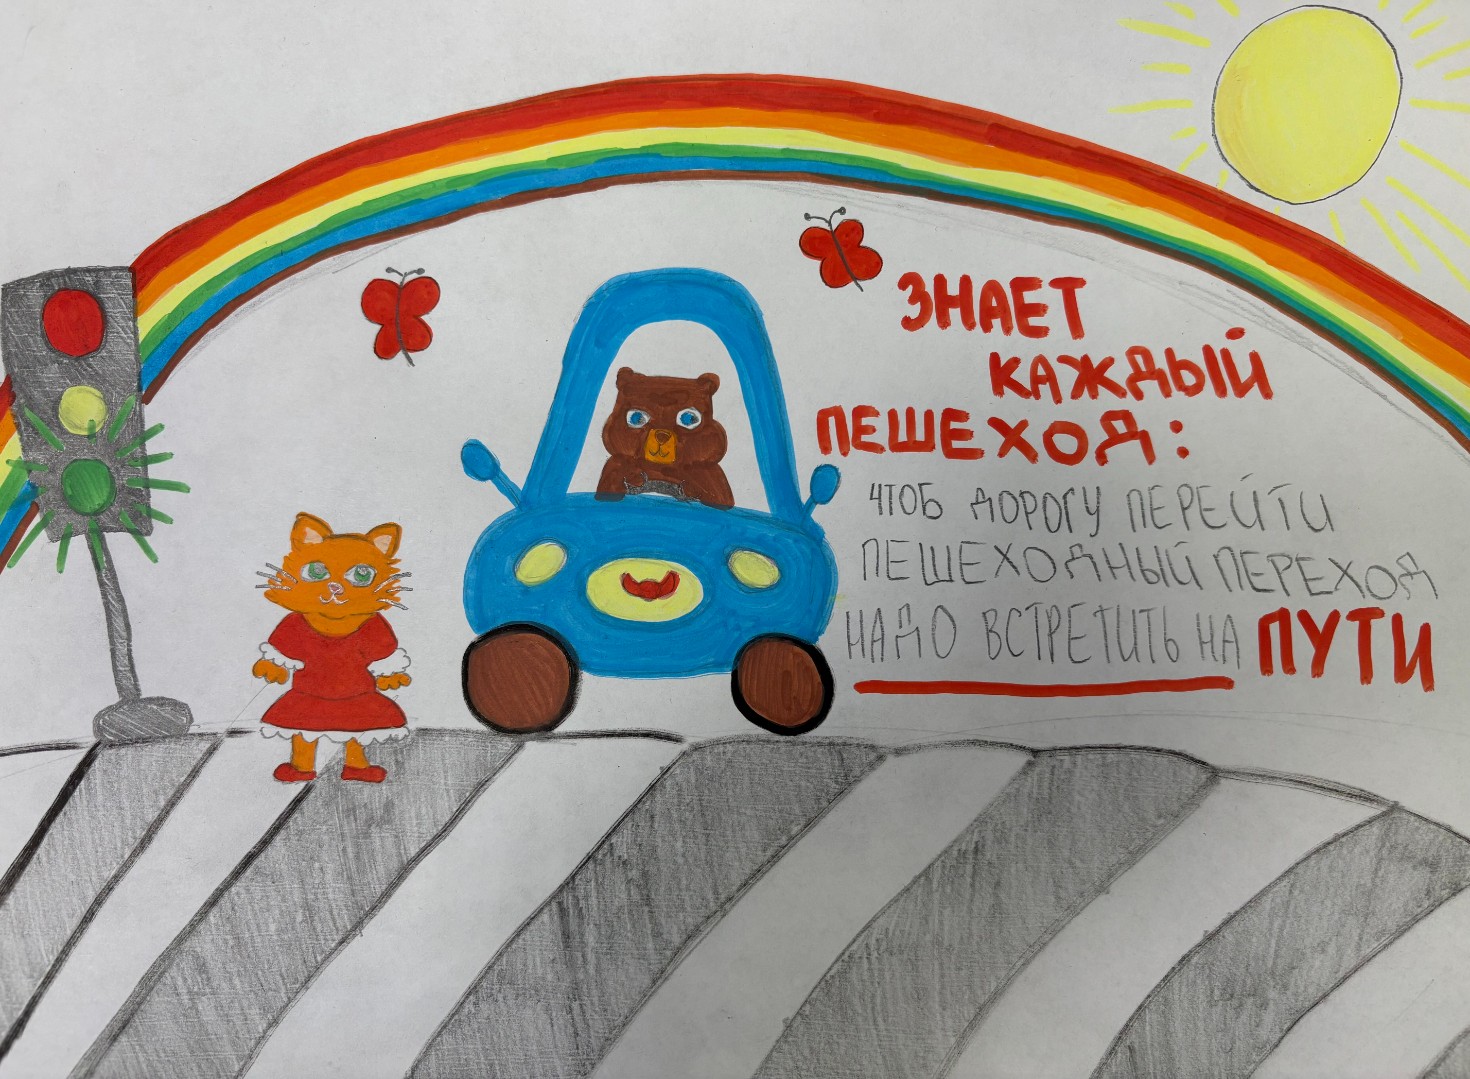 ЗНАЕТ
КАЖДЫЙ
ПЕШЕХОД:
ЧТОБ ДОРОГУ ПЕРЕЙТИ
ПЕШЕХОДНЫЙ ПЕРЕХОД
НАДО ВСТРЕТИТЬ НА ПУТИ